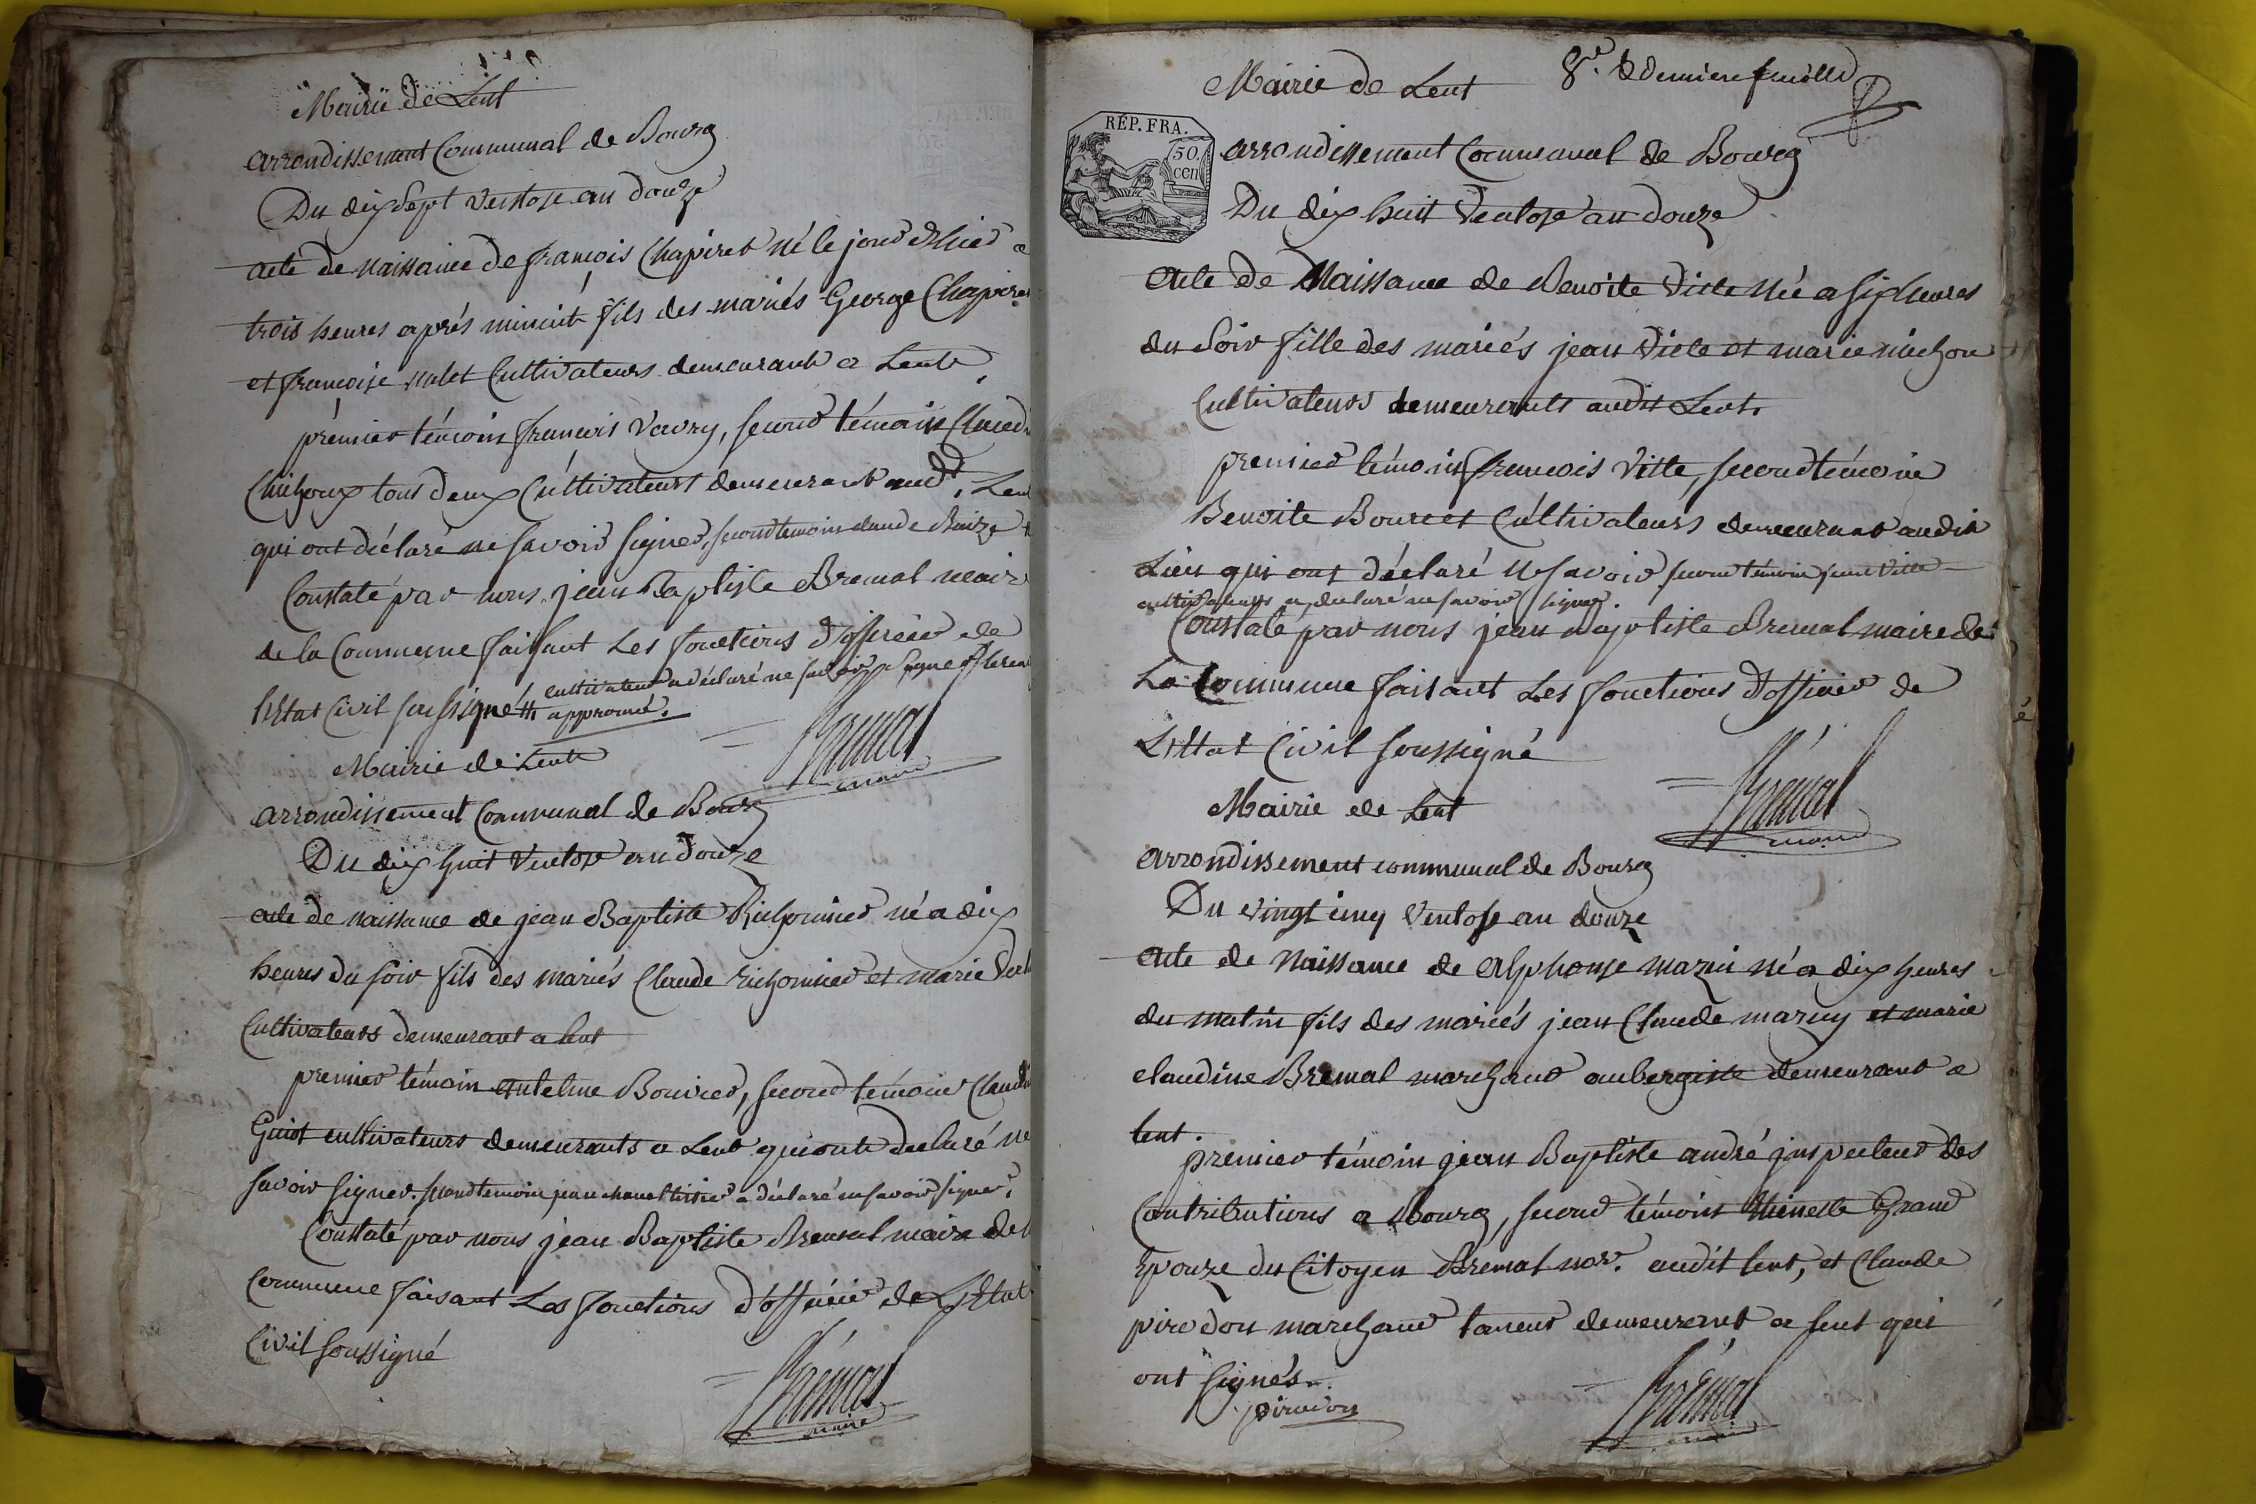 Mairie de Lent
arrondissement Communal de Bourg
Du dix Sept Ventose an douze
acte de naissance de françois Chapiret né le jour d'hier a
trois heures aprés minuit fils des mariés George Chapiret
et françoise nalet Cultivateurs demeurant a Lent
prémier témoin françois Vavry, second témoin Claud
tous deux Cultivateurs demeurant aud.t Lent
qui ont déclaré ne savoir signer, second temoin claude
Constaté par nous jean Baptiste Bremal maire
de la Commune faisant Les fonctions d'officier de
cultivateur a déclaré ne savoir signer
l'Etat Civil soussigné # approuvé.
Brémal
maire
Mairie de Lent
arrondissement Communal de Bourg
Du dix huit Ventose an douze
acte de naissance de jean Baptiste Richonnier né a dix
heures du soir fils des mariés Claude richonnier et marie
Cultivateurs demeurant a lent
premier témoin antelme Bouvier, second témoin Claud
Guiot cultivateurs demeurants a Lent qui ont declaré ne
savoir signer. second temoin jean a déclaré ne savoir signer.
Constaté par nous jean Baptiste Bremal maire de l
Commune faisant Les fonctions d'officier de L'Etat
Civil soussigné
Brémal
maire
8.e & derniere feuille
Mairie de Lent
RÉP. FRA.
50
cen
arrondissement Communal de Bourg
Du dix huit Ventose an douze
acte de Naissance de Benoite Vitte née a six heures
du Soir fille des mariés jean Vitte et marie michon
Cultivateurs demeurants audit Lent.
premier témoin françois Vitte, second témoin
Benoite Bourcet Cultivateurs demeurant audit
Lieu qui ont déclaré ne savoir second témoin jean Vitte
cultivateurs a declaré ne savoir signer.
Constaté par nous jean baptiste Bremal maire de
La Commune faisant Les fonctions d'officier de
L'Etat Civil soussigné
Brémal
maire
Mairie de Lent
arrondissement communal de Bourg
Du vingt cinq Ventose an douze
acte de Naissance de alphonse mazuy né a dix heures
du matin fils des mariés jean Claude mazuy et marie
claudine Bremal marchand aubergiste demeurant a
lent.
premier témoin jean Baptiste andré inspecteur des
Contributions a Bourg, second témoin Grand
Epouze du Citoyen Bremal no.re audit lent, et Claude
pirodon marchand taneur demeurant a lent qui
ont signés
pirodon
Brémal
maire